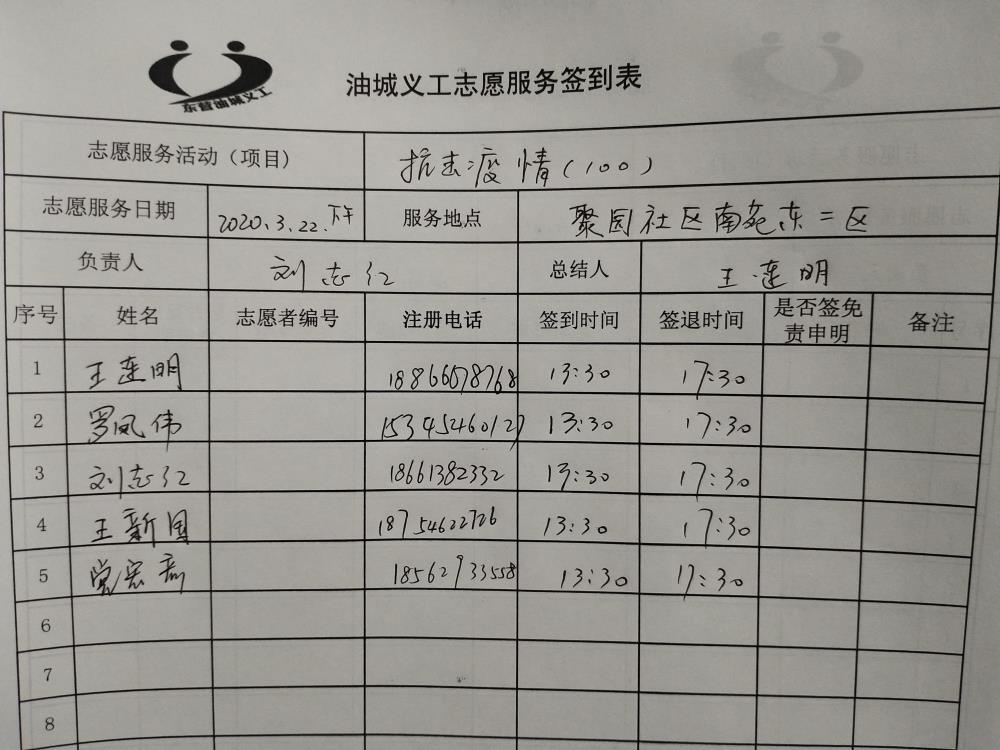 东营油城义工
油城义工志愿服务签到表
志愿服务活动（项目） 抗击疫情（100）
志愿服务日期 2020.3.22.下午 服务地点 聚园社区南苑东二区
负责人 刘志红 总结人 王连明
序号 姓名 志愿者编号 注册电话 签到时间 签退时间 是否签免责申明 备注
1 王连明 18866678768 13:30 17:30
2 罗凤伟 15345460127 13:30 17:30
3 刘志红 18661382332 13:30 17:30
4 王新国 18754622726 13:30 17:30
5 18562933558 13:30 17:30
6
7
8